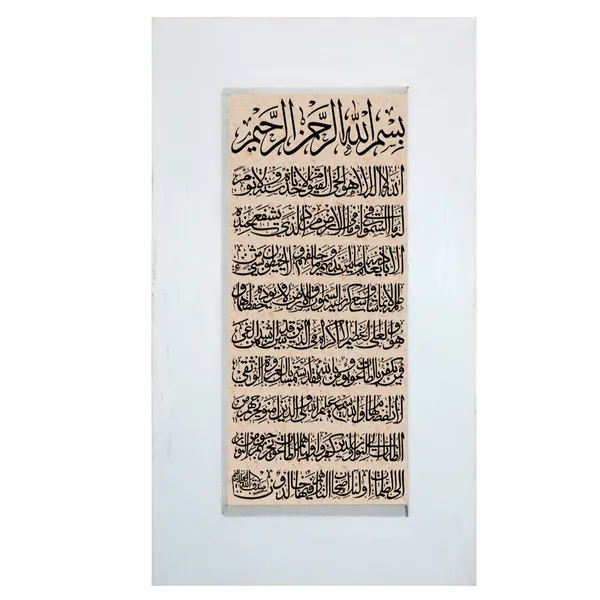 بِسْمِ اللهِ الرَّحْمنِ الرَّحِيْمِ
الله لا اله الا هو الحي القيوم لا تاخذه سنة ولا نوم
له ما في السموات وما في الارض من ذا الذي يشفع عنده
الا باذنه يعلم ما بين ايديهم وما خلفهم ولا يحيطون بشيء من
علمه الا بما شاء وسع كرسيه السموات والارض ولا يؤده حفظهما و
هو العلي العظيم لا اكراه في الدين قد تبين الرشد من الغي
فمن يكفر بالطاغوت ويؤمن بالله فقد استمسك بالعروة الوثقى
لا انفصام لها والله سميع عليم الله ولي الذين امنوا يخرجهم من
الظلمات الى النور والذين كفروا اولياؤهم الطاغوت يخرجونهم من النور
الى الظلمات اولئك اصحاب النار هم فيها خالدون